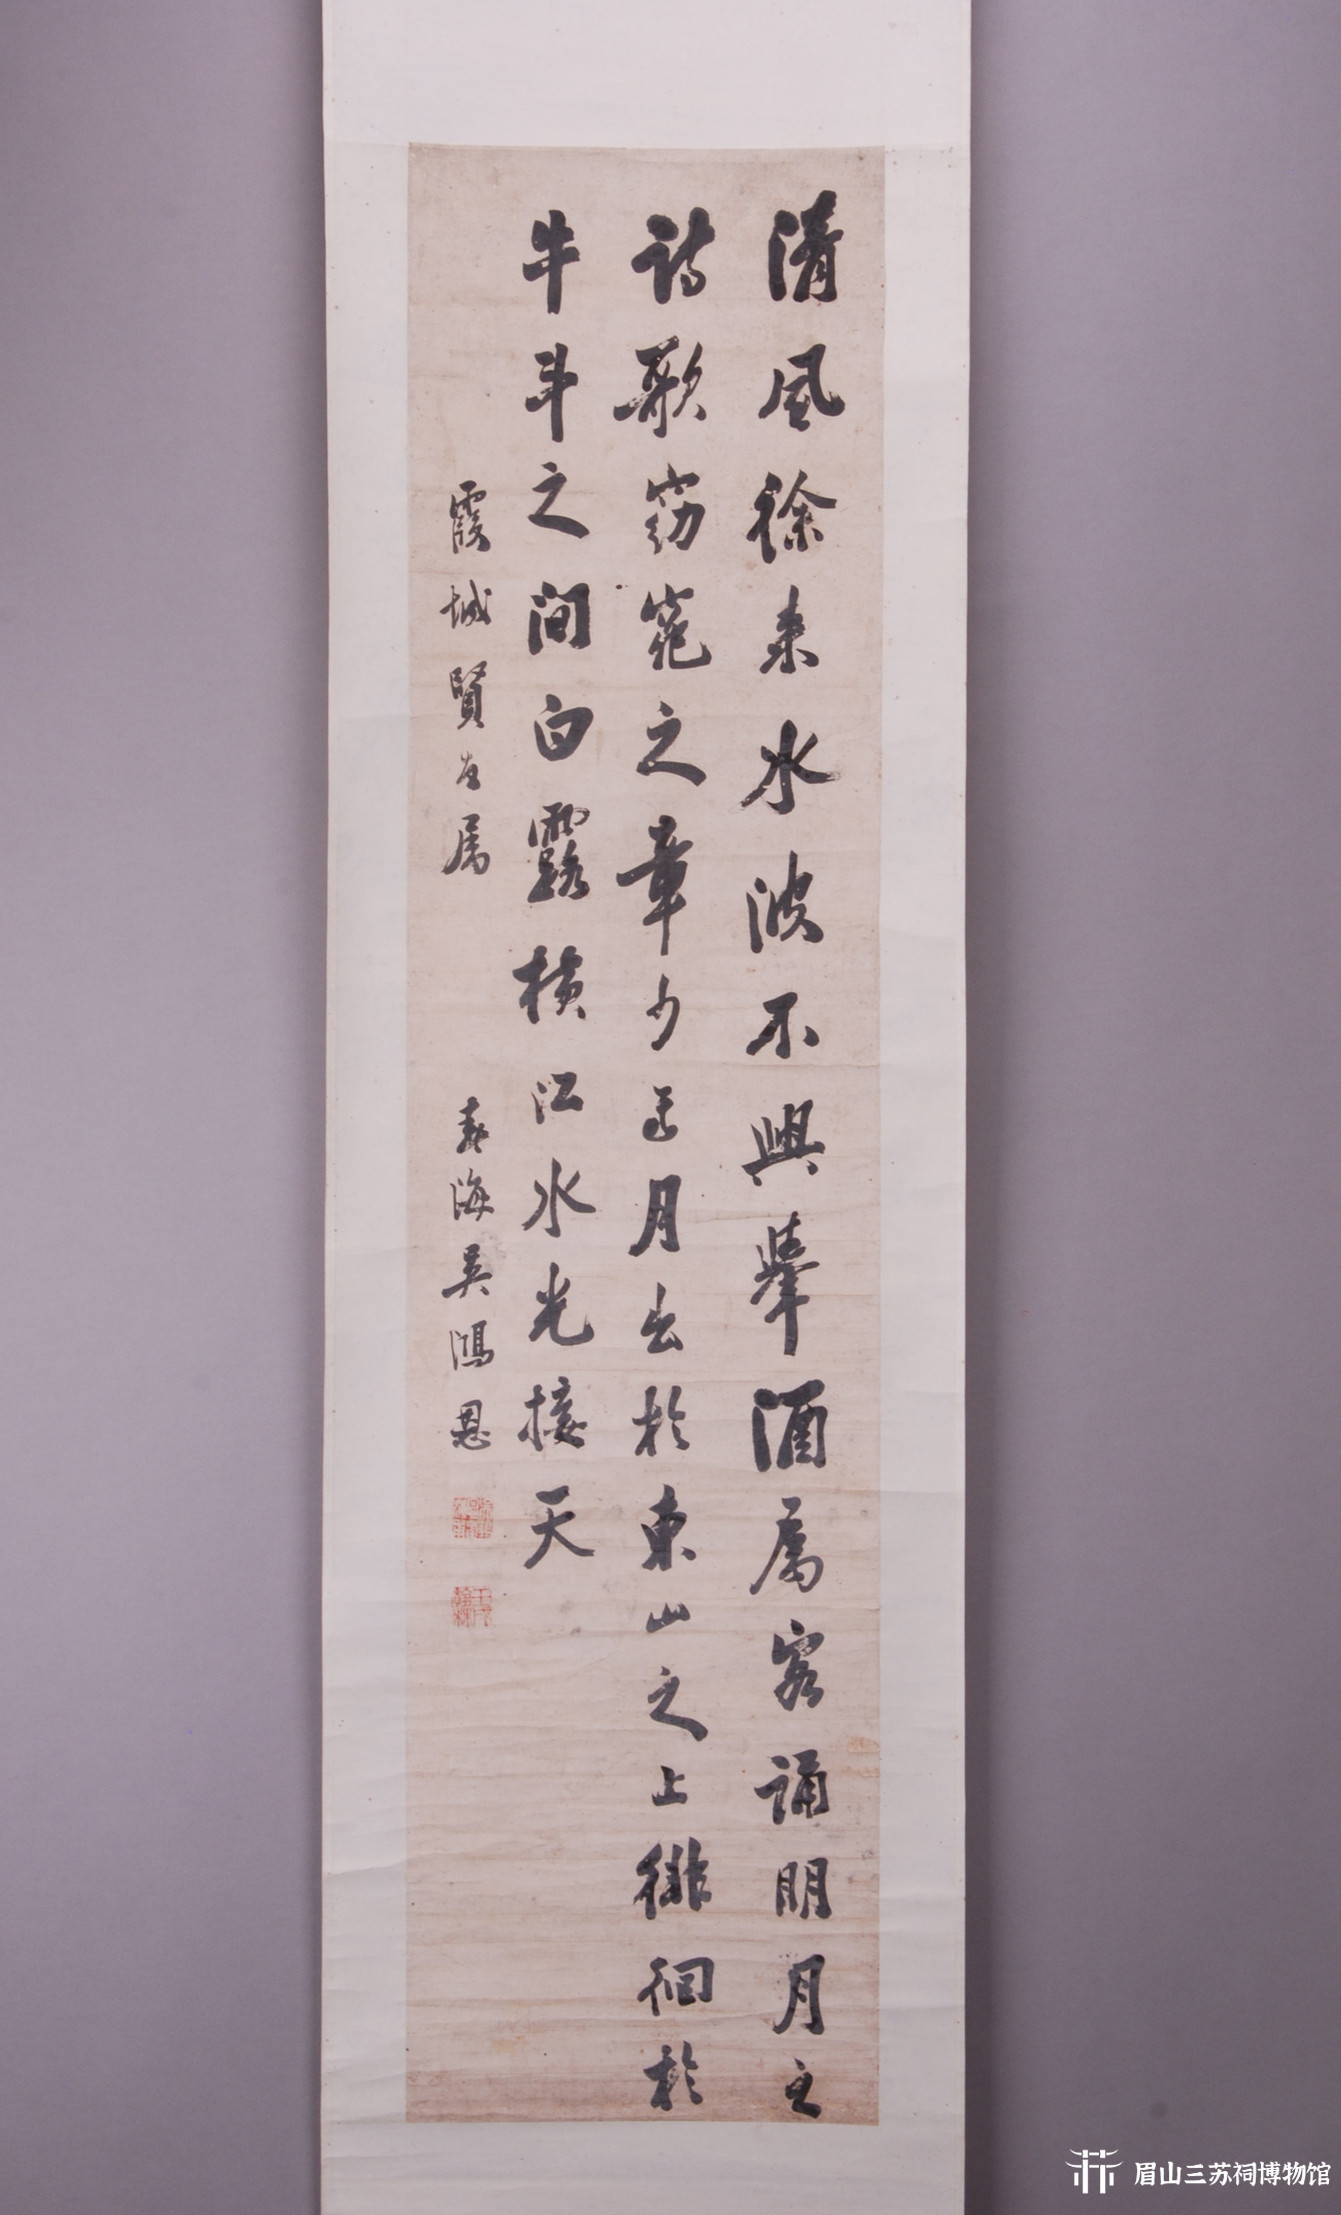 清風徐来水波不興舉酒属客誦明月之
詩歌窈窕之章少焉月出於東山之上徘徊於
牛斗之間白露横江水光接天
霞城賢台属
春海吴鴻恩
眉山三苏祠博物馆